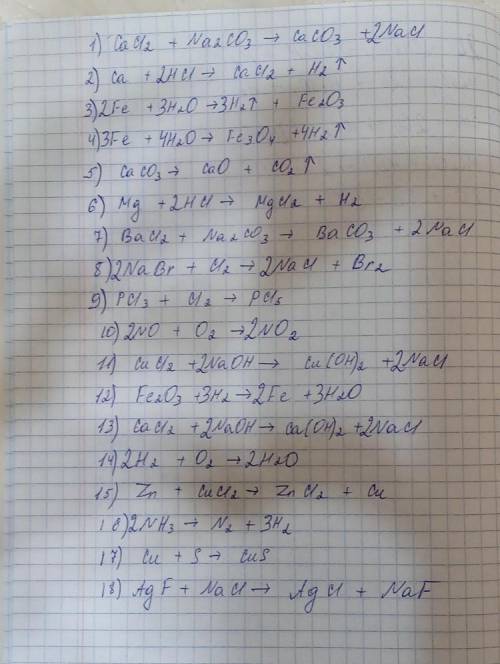 1) CaCl2 + Na2CO3 → CaCO3 + 2NaCl
2) Ca + 2HCl → CaCl2 + H2↑
3) 2Fe + 3H2O → 3H2↑ + Fe2O3
4) 3Fe + 4H2O → Fe3O4 + 4H2↑
5) CaCO3 → CaO + CO2↑
6) Mg + 2HCl → MgCl2 + H2
7) BaCl2 + Na2CO3 → BaCO3 + 2NaCl
8) 2NaBr + Cl2 → 2NaCl + Br2
9) PCl3 + Cl2 → PCl5
10) 2NO + O2 → 2NO2
11) CuCl2 + 2NaOH → Cu(OH)2 + 2NaCl
12) Fe2O3 + 3H2 → 2Fe + 3H2O
13) CaCl2 + 2NaOH → Ca(OH)2 + 2NaCl
14) 2H2 + O2 → 2H2O
15) Zn + CuCl2 → ZnCl2 + Cu
16) 2NH3 → N2 + 3H2
17) Cu + S → CuS
18) AgF + NaCl → AgCl + NaF